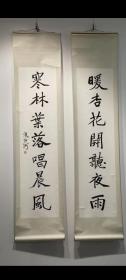 暖杏花開聽夜雨
寒林葉落唱晨風